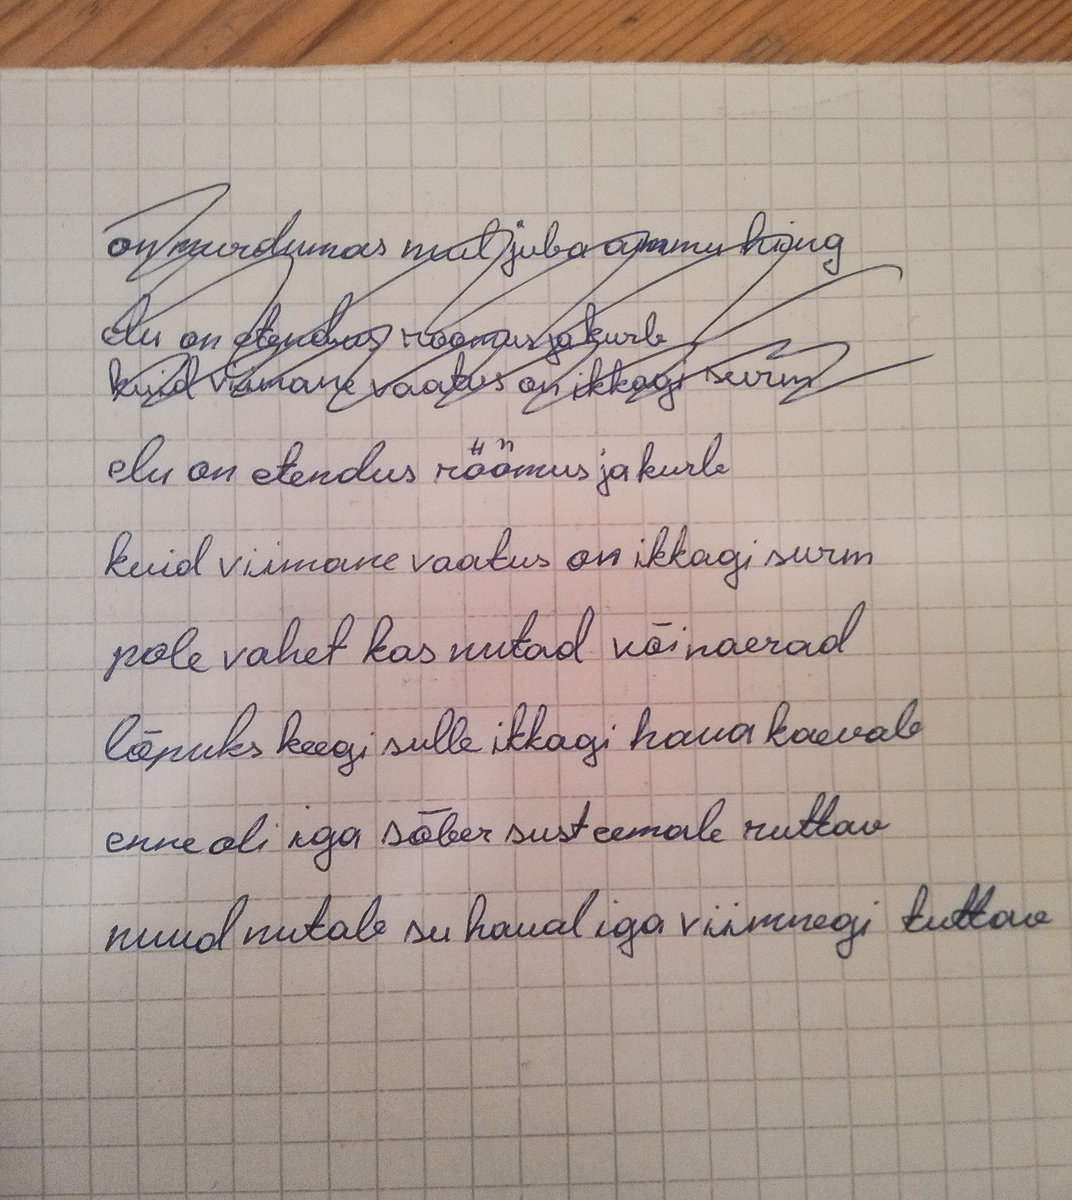 on murdumas mul juba ammu hing
elu on etendus roomus ja kurb
kuid viimane vaatus on ikkagi surm
elu on etendus rõõmus ja kurb
kuid viimane vaatus on ikkagi surm
pole vahet kas nutad või naerad
lõpuks keegi sulle ikkagi haua kaevab
enne oli iga sõber sust eemale ruttav
nuud nutab su haual iga viimnegi tuttav